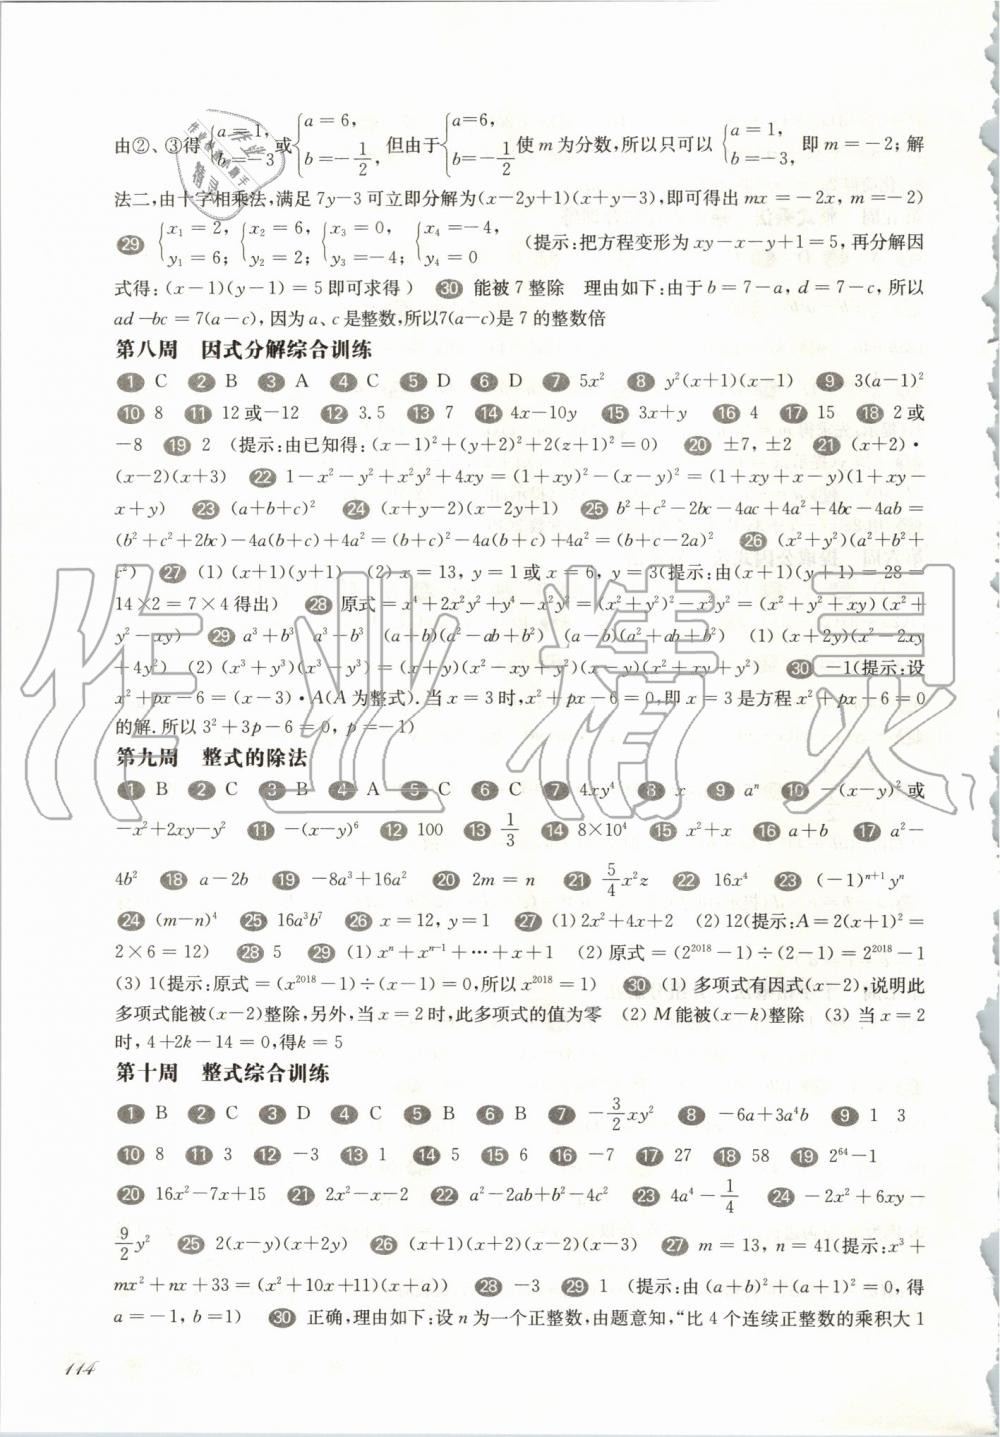 由②、③得{a=1, b=-3 或{a=6, b=-1/2, 但由于{a=6, b=-1/2 使 m 为分数,所以只可以{a=1, b=-3, 即 m=-2; 解
法二,由十字相乘法,满足 7y-3 可立即分解为(x-2y+1)(x+y-3),即可得出 mx=-2x, m=-2)
㉙ {x₁=2, y₁=6; {x₂=6, y₂=2; {x₃=0, y₃=-4; {x₄=-4, y₄=0 (提示:把方程变形为 xy-x-y+1=5,再分解因
式得: (x-1)(y-1)=5 即可求得) ㉚ 能被 7 整除 理由如下:由于 b=7-a, d=7-c, 所以
ad-bc=7(a-c), 因为 a、c 是整数,所以7(a-c)是 7 的整数倍
第八周 因式分解综合训练
① C ② B ③ A ④ C ⑤ D ⑥ D ⑦ 5x² ⑧ y²(x+1)(x-1) ⑨ 3(a-1)²
⑩ 8 ⑪ 12 或-12 ⑫ 3.5 ⑬ 7 ⑭ 4x-10y ⑮ 3x+y ⑯ 4 ⑰ 15 ⑱ 2 或
-8 ⑲ 2 (提示:由已知得: (x-1)²+(y+2)²+2(z+1)²=0) ⑳ ±7, ±2 ㉑ (x+2)·
(x-2)(x+3) ㉒ 1-x²-y²+x²y²+4xy=(1+xy)²-(x-y)²=(1+xy+x-y)(1+xy-
x+y) ㉓ (a+b+c)² ㉔ (x+y-2)(x-2y+1) ㉕ b²+c²-2bc-4ac+4a²+4bc-4ab=
(b²+c²+2bc)-4a(b+c)+4a²=(b+c)²-4a(b+c)+4a²=(b+c-2a)² ㉖ (x²+y²)(a²+b²+
c²) ㉗ (1) (x+1)(y+1) (2) x=13, y=1 或 x=6, y=3(提示:由(x+1)(y+1)=28=
14×2=7×4 得出) ㉘ 原式=x⁴+2x²y²+y⁴-x²y²=(x²+y²)²-x²y²=(x²+y²+xy)(x²+
y²-xy) ㉙ a³+b³ a³-b³ (a+b)(a²-ab+b²) (a-b)(a²+ab+b²) (1) (x+2y)(x²-2xy
+4y²) (2) (x³+y³)(x³-y³)=(x+y)(x²-xy+y²)(x-y)(x²+xy+y²) ㉚ -1(提示:设
x²+px-6=(x-3)·A(A 为整式). 当 x=3 时, x²+px-6=0, 即 x=3 是方程 x²+px-6=0
的解. 所以 3²+3p-6=0, p=-1)
第九周 整式的除法
① B ② C ③ B ④ A ⑤ C ⑥ C ⑦ 4xy⁴ ⑧ x ⑨ aⁿ ⑩ -(x-y)² 或
-x²+2xy-y² ⑪ -(x-y)⁶ ⑫ 100 ⑬ 1/3 ⑭ 8×10⁴ ⑮ x²+x ⑯ a+b ⑰ a²-
4b² ⑱ a-2b ⑲ -8a³+16a² ⑳ 2m=n ㉑ 5/4x²z ㉒ 16x⁴ ㉓ (-1)ⁿ⁺¹yⁿ
㉔ (m-n)⁴ ㉕ 16a³b⁷ ㉖ x=12, y=1 ㉗ (1) 2x²+4x+2 (2) 12(提示:A=2(x+1)²=
2×6=12) ㉘ 5 ㉙ (1) xⁿ+xⁿ⁻¹+…+x+1 (2) 原式=(2²⁰¹⁸-1)÷(2-1)=2²⁰¹⁸-1
(3) 1(提示:原式=(x²⁰¹⁸-1)÷(x-1)=0,所以 x²⁰¹⁸=1) ㉚ (1) 多项式有因式(x-2),说明此
多项式能被(x-2)整除,另外,当 x=2 时,此多项式的值为零 (2) M能被(x-k)整除 (3) 当 x=2
时, 4+2k-14=0,得k=5
第十周 整式综合训练
① B ② C ③ D ④ C ⑤ B ⑥ B ⑦ -3/2xy² ⑧ -6a+3a⁴b ⑨ 1 3
⑩ 8 ⑪ 3 ⑫ -3 ⑬ 1 ⑭ 5 ⑮ 6 ⑯ -7 ⑰ 27 ⑱ 58 ⑲ 2⁶⁴-1
⑳ 16x²-7x+15 ㉑ 2x²-x-2 ㉒ a²-2ab+b²-4c² ㉓ 4a⁴-1/4 ㉔ -2x²+6xy-
9/2y² ㉕ 2(x-y)(x+2y) ㉖ (x+1)(x+2)(x-2)(x-3) ㉗ m=13, n=41(提示:x³+
mx²+nx+33=(x²+10x+11)(x+a)) ㉘ -3 ㉙ 1 (提示:由 (a+b)²+(a+1)²=0, 得
a=-1, b=1) ㉚ 正确,理由如下:设 n 为一个正整数,由题意知,“比 4 个连续正整数的乘积大 1
114
作业精灵